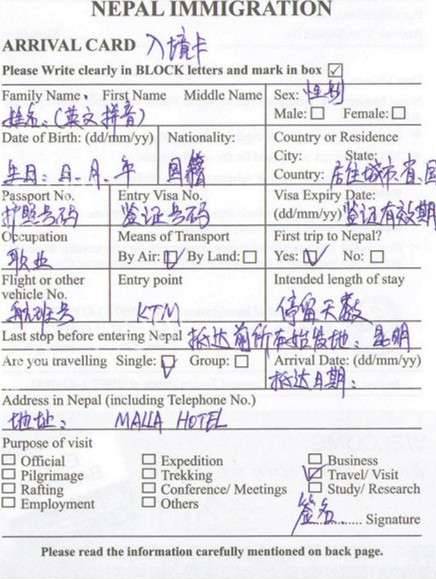 NEPAL IMMIGRATION
ARRIVAL CARD 入境卡
Please Write clearly in BLOCK letters and mark in box ☑
Family Name, First Name Middle Name
姓名:(英文拼音)
Sex: 性别
Male: □ Female: □
Date of Birth: (dd/mm/yy)
生日:日.月.年
Nationality:
国籍
Country or Residence
City: State:
Country: 居住城市.省.国
Passport No.
护照号码
Entry Visa No.
签证号码
Visa Expiry Date:
(dd/mm/yy) 签证有效期
Occupation
职业
Means of Transport
By Air: ☑ By Land: □
First trip to Nepal?
Yes: ☑ No: □
Flight or other
vehicle No.
航班号
Entry point
KTM
Intended length of stay
停留天数
Last stop before entering Nepal 抵达前所在始发地:昆明
Are you travelling Single: ☑ Group: □
Arrival Date: (dd/mm/yy)
抵达日期:
Address in Nepal (including Telephone No.)
地址: MALLA HOTEL
Purpose of visit
□ Official □ Expedition □ Business
□ Pilgrimage □ Trekking ☑ Travel/ Visit
□ Rafting □ Conference/ Meetings □ Study/ Research
□ Employment □ Others
签名............ Signature
Please read the information carefully mentioned on back page.